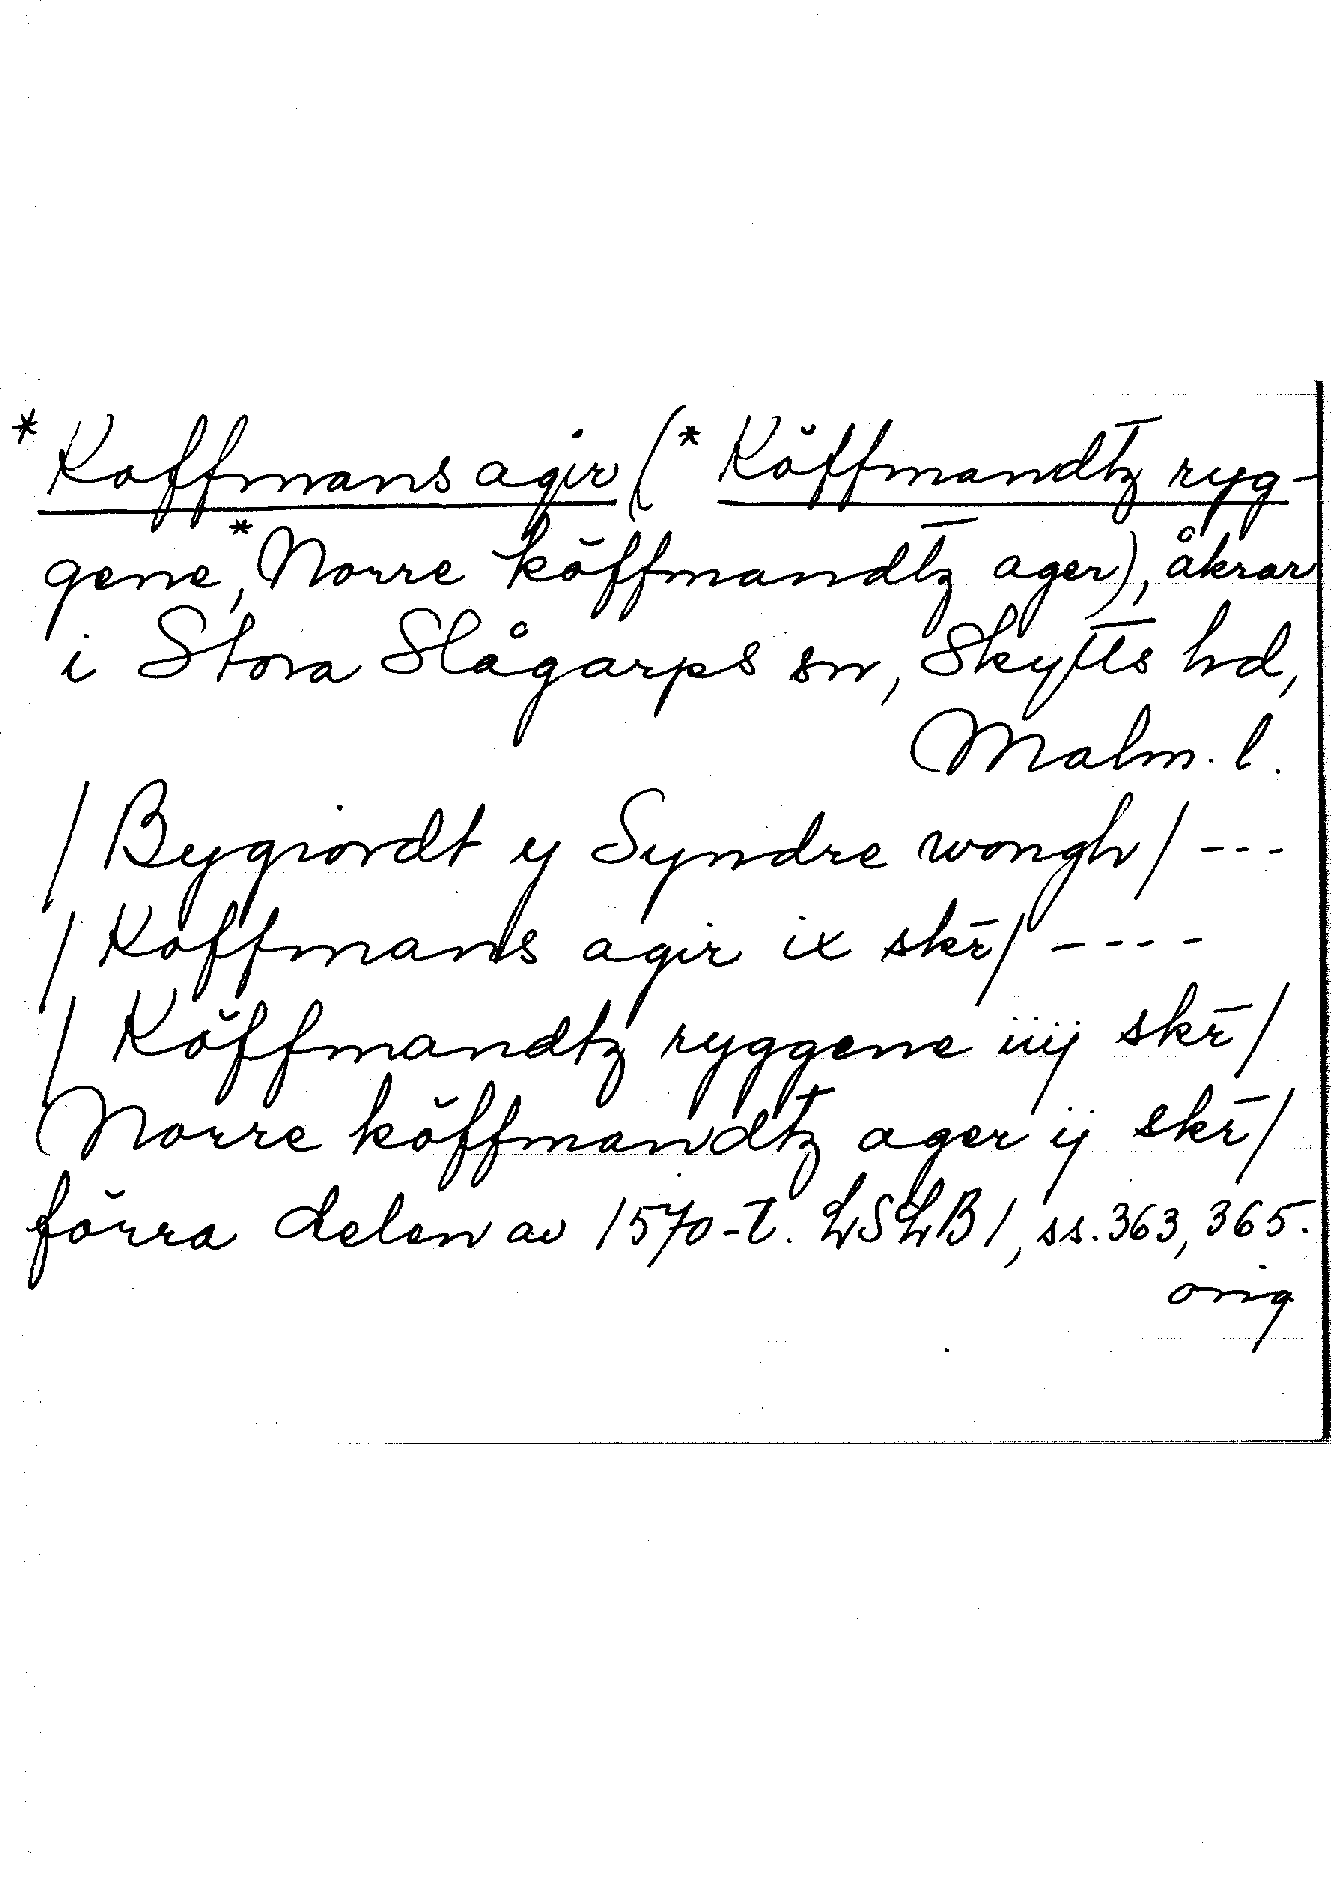 * Koffmans agir (* Köffmandtz ryg-
gene, * Norre köffmandtz ager), åkrar
i Stora Slågarps sn, Skytts hd,
Malm. l.
/ Bygiordt y Syndre wongh / ---
/ Koffmans agir ix skr̄ / ----
/ Köffmandtz ryggene iiij skr̄ /
Norre köffmandtz ager ij skr̄ /
förra delen av 1570-t. LSLB 1, ss. 363, 365.
orig